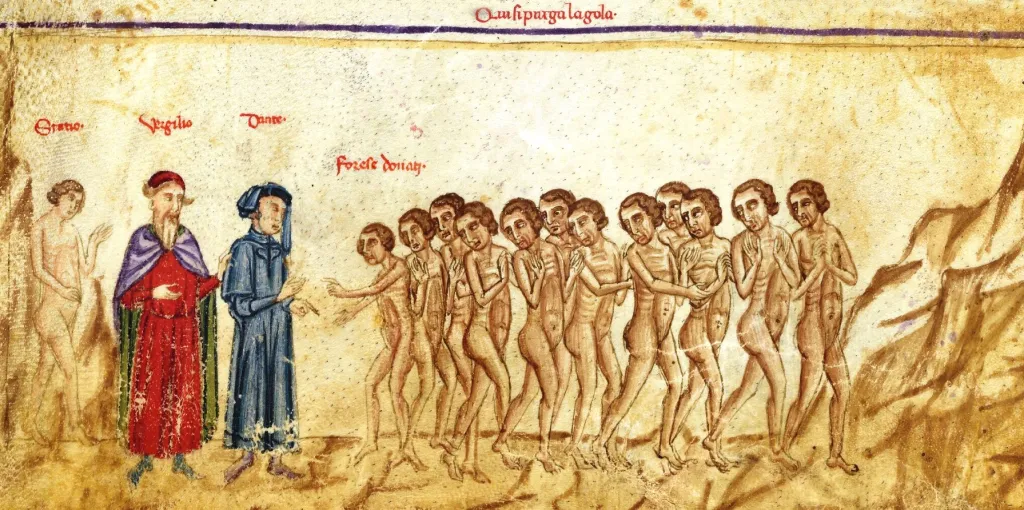 Qui si purga la gola.
Statio.
Vergilio
Dante.
forese donati.